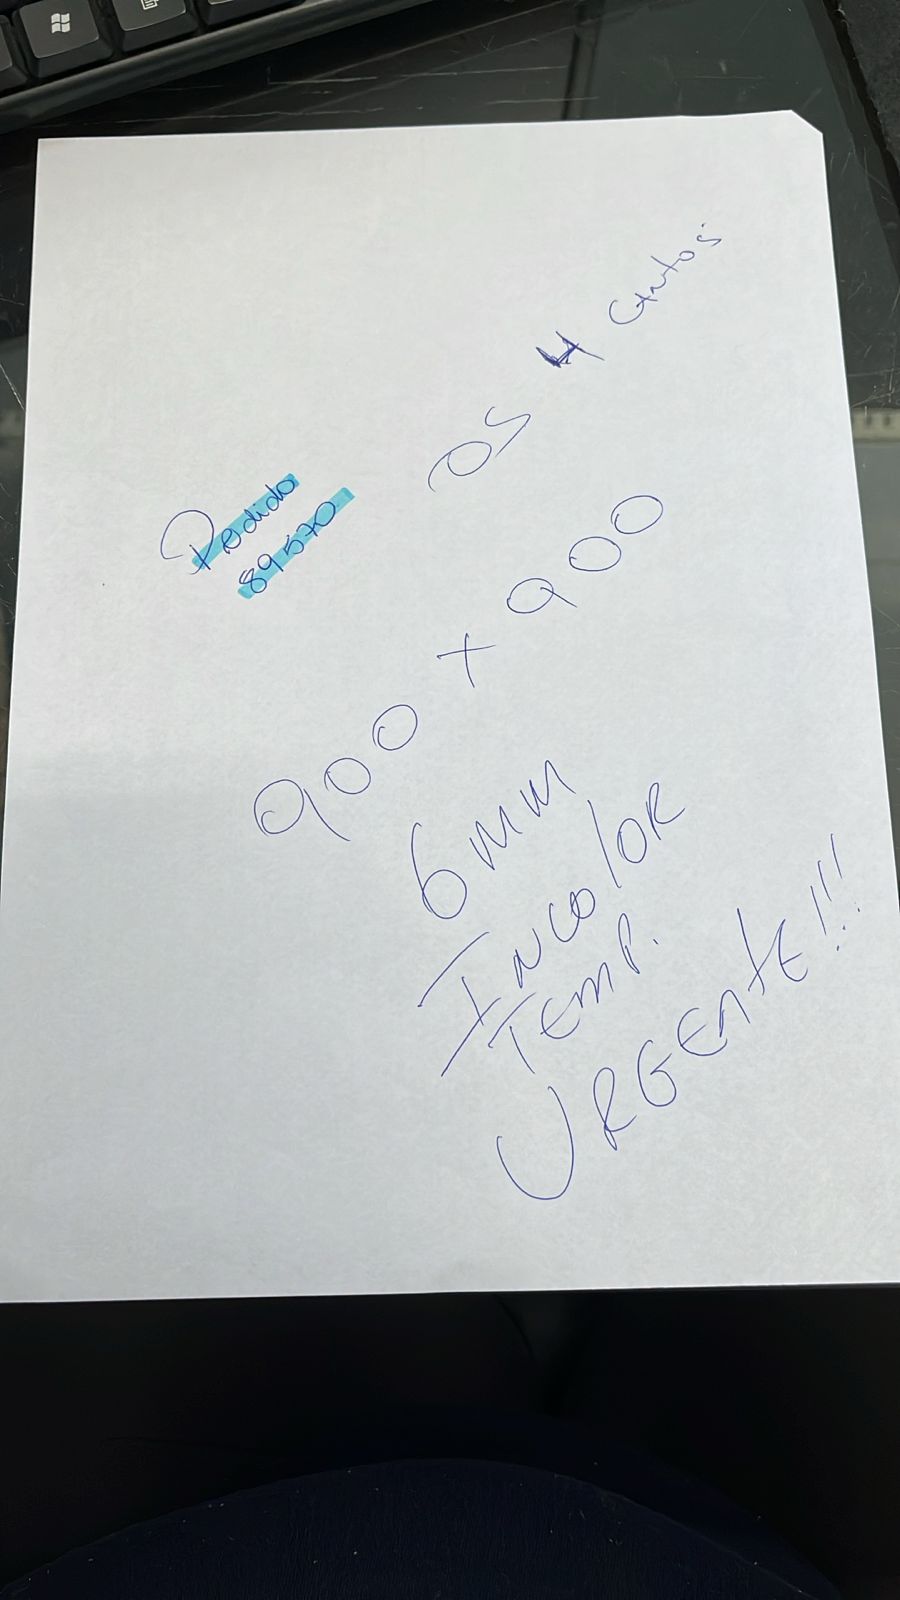 OS 4 Cantos
Pedido
89570
900 + 900
6mm
Incolor
Temp.
URGENTE!!!